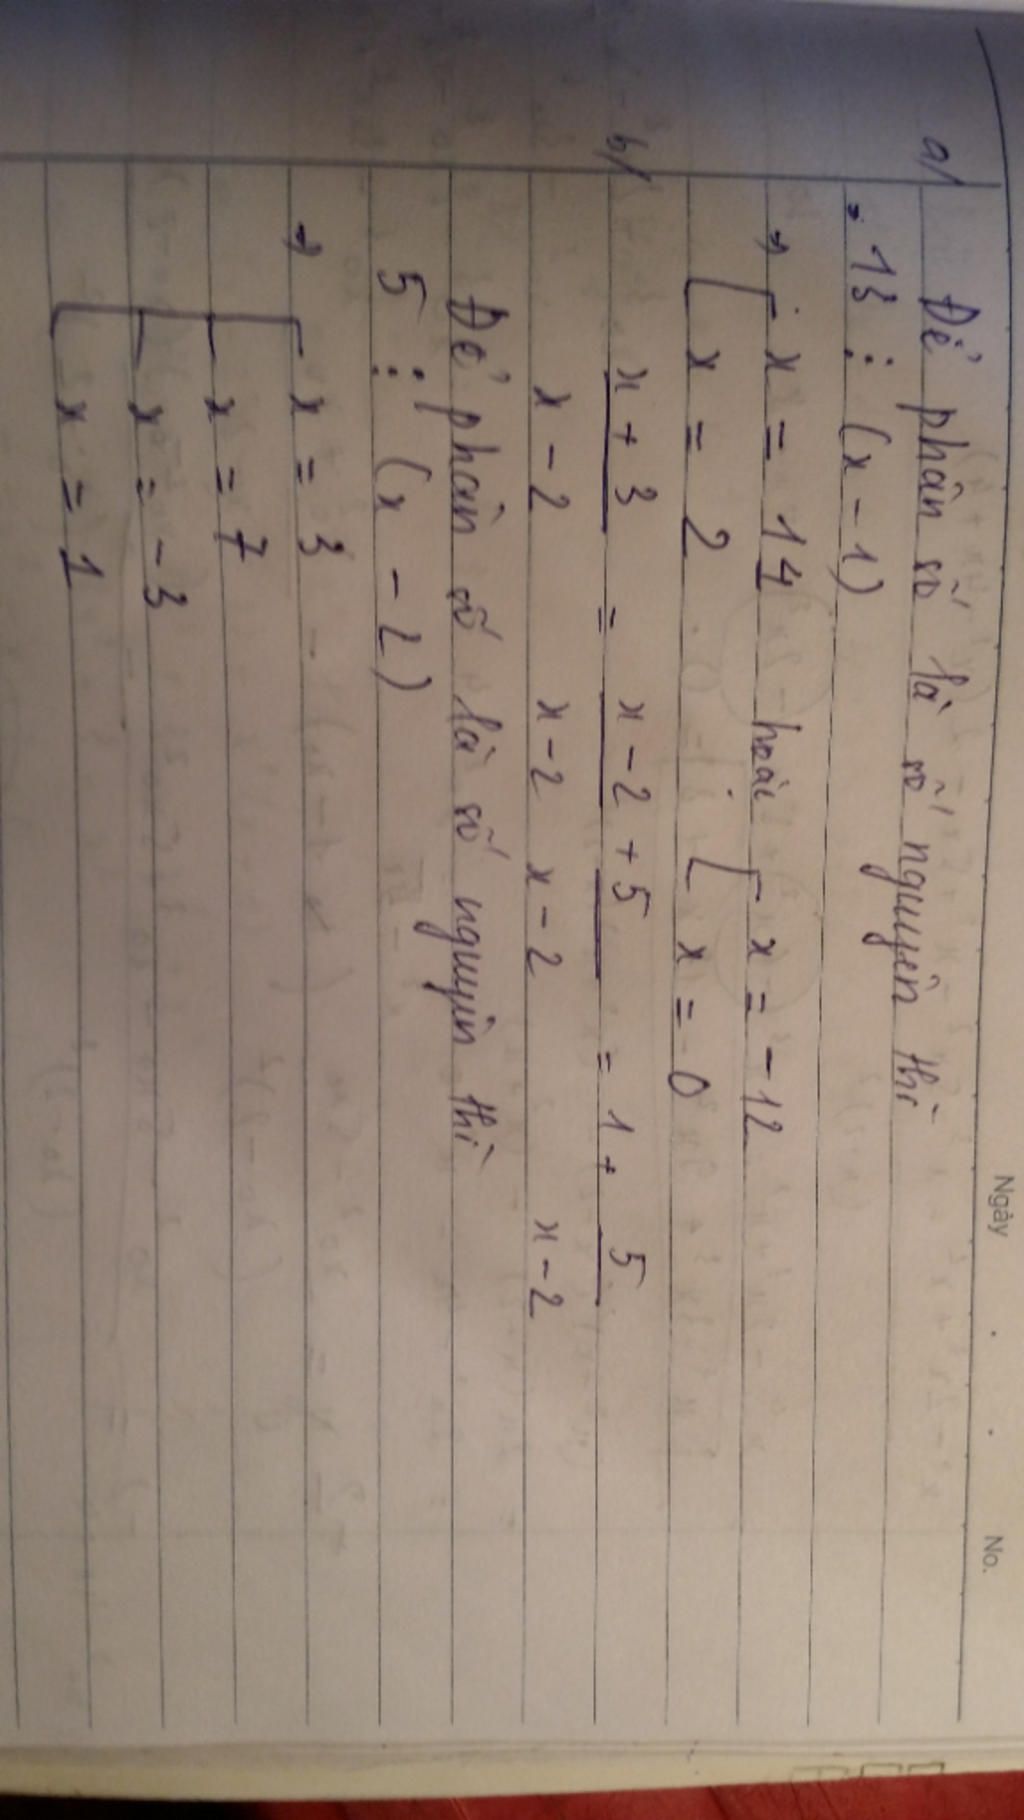 Ngày . . No.
a/ Để phân số là số nguyên thì
→ 13 ⋮ (x - 1)
→ [ x = 14 hoặc [ x = -12
[ x = 2 [ x = 0
b/ x + 3 = x - 2 + 5 = 1 + 5
x - 2 x - 2 x - 2 x - 2
Để phân số là số nguyên thì
5 ⋮ (x - 2)
→ [ x = 3
x = 7
x = -3
x = 1